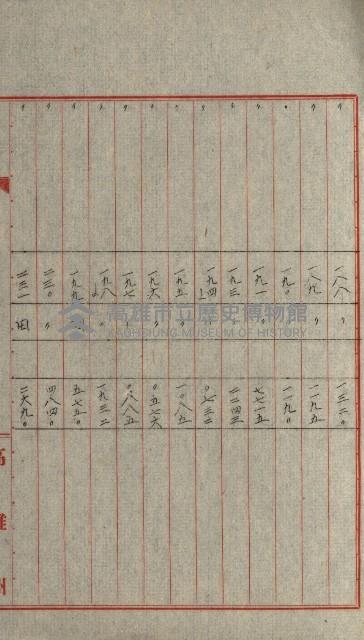 〃 一八八 〃 一三二〇
〃 一八九 〃 一一九五
〃 一九〇 〃 一一九〇
〃 一九一 〃 七七一五
〃 一九三 〃 二二四三
〃 一九四 〃 〇七三二
〃 一九五 〃 一〇八五
〃 一九六 〃 〇五七六
〃 一九七 〃 〇八八五
〃 一九八 〃 一九三二
〃 一九九 五七五〇
〃 二三〇 〃 四八四〇
〃 二三一 田 二六九〇
高雄州
高雄市立歷史博物館
KAOHSIUNG MUSEUM OF HISTORY